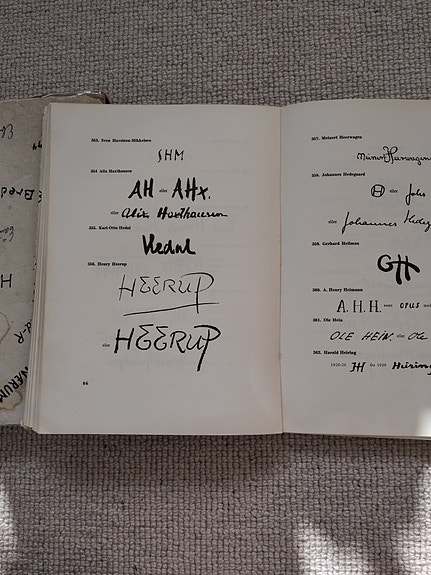 353. Sven Havsteen-Mikkelsen
SHM
354 Alix Haxthausen
AH eller AHx.
eller Alix Haxthausen
355. Karl-Otto Hedal
Hedal
356. Henry Heerup
HEERUP
eller HEERUP
86
357. Meinert Heerwagen
Heerwagen
358. Johannes Hedegaard
H eller Johs
eller Johannes Hedeg
359. Gerhard Heilman
GH
360. A. Henry Heimann
A. H. H. samt OPUS med
361. Ole Hein
OLE HEIN. eller Ole
362. Harald Heiring
1920-30 HH før 1920 Heiring